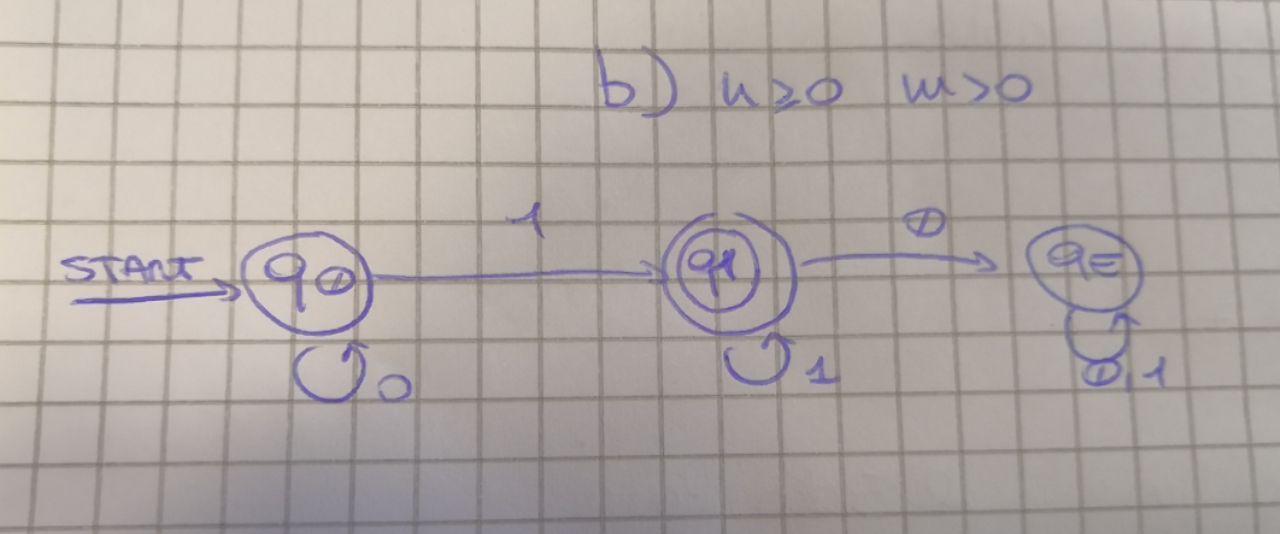 b) n≥0 m>0
1 0
START q0 q1 qE
0 1 0,1